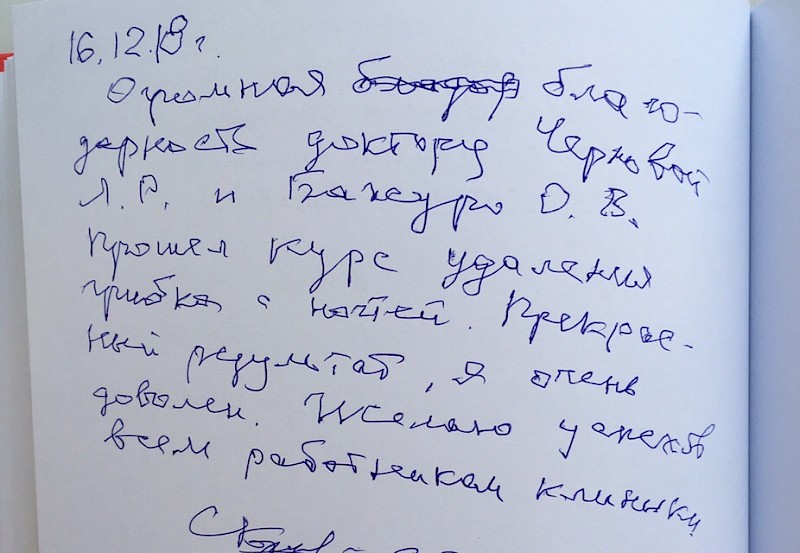 16.12.18 г.
Огромная благо-
дарность доктору Черновой
Л.Р. и Бажуро О.В.
Прошел курс удаления
грибка с ногтей. Прекрас-
ный результат, я очень
доволен. Желаю успехов
всем работникам клиники